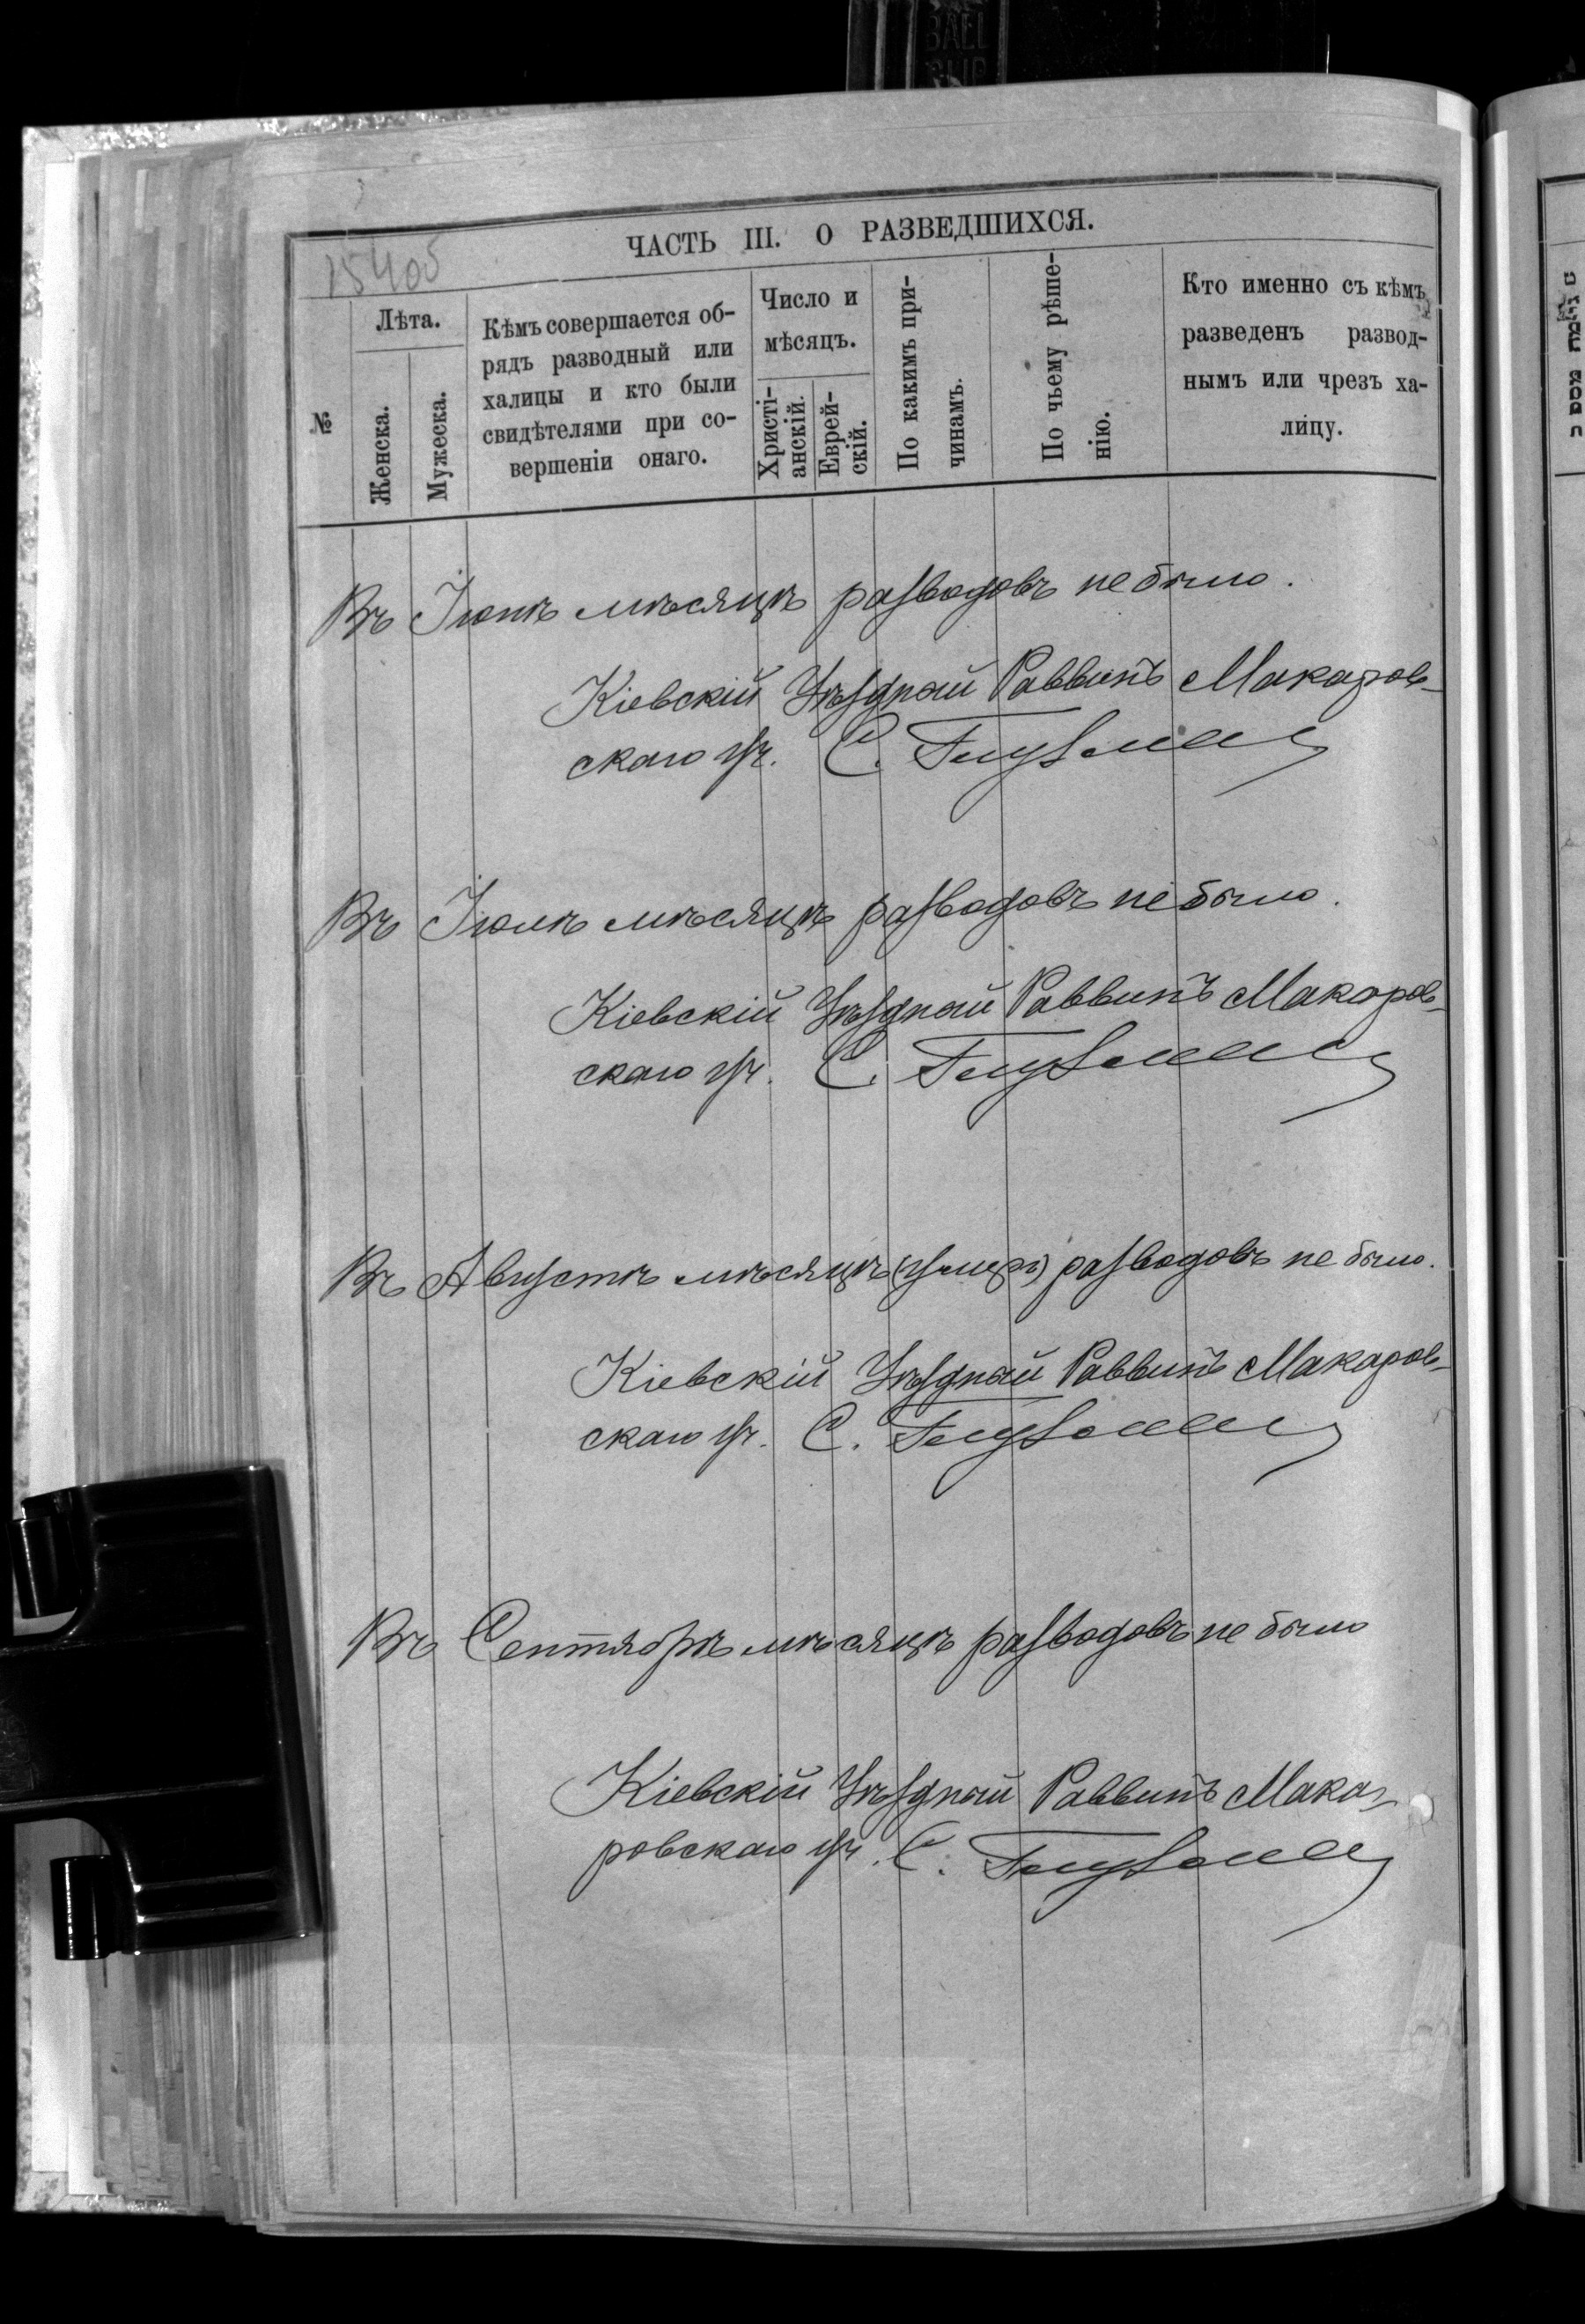 15405
ЧАСТЬ III. О РАЗВЕДШИХСЯ.
№
Лѣта.
Женска.
Мужеска.
Кѣмъ совершается об-
рядъ разводный или
халицы и кто были
свидѣтелями при со-
вершеніи онаго.
Число и
мѣсяцъ.
Христі-
анскій.
Еврей-
скій.
По какимъ при-
чинамъ.
По чьему рѣше-
нію.
Кто именно съ кѣмъ
разведенъ развод-
нымъ или чрезъ ха-
лицу.
Въ Іюнѣ мѣсяцѣ разводовъ не было.
Кіевскій Уѣздный Раввинъ Макаров-
скаго уч. С.
Въ Іюлѣ мѣсяцѣ разводовъ не было.
Кіевскій Уѣздный Раввинъ Макаров-
скаго уч. С.
Въ Августѣ мѣсяцѣ разводовъ не было.
Кіевскій Уѣздный Раввинъ Макаров-
скаго уч. С.
Въ Сентябрѣ мѣсяцѣ разводовъ не было
Кіевскій Уѣздный Раввинъ Мака-
ровскаго уч. С.